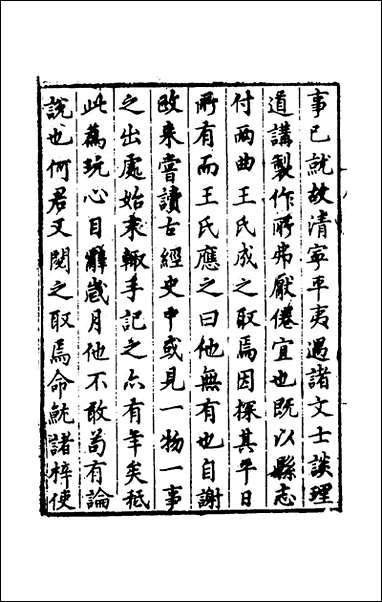 事已就故清寧平夷遇諸文士談理
道講製作所弗厭倦宜也既以縣志
付兩曲王氏成之取焉因探其平日
所有而王氏應之曰他無有也自謝
政来嘗讀古經史中或見一物一事
之出處始末輒手記之亦有年矣秪
此為玩心目辭歲月他不敢苟有論
說也何君又閱之取焉命鋟諸梓使